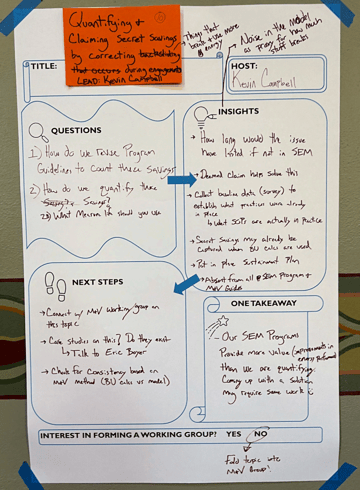 Quantifying &
Claiming Secret Savings
by correcting backsliding
that occurs during engagements
LEAD: Kevin Campbell
Things that
break + use more
energy!
Noise in the model
as proxy for how much
stuff breaks
TITLE:
HOST:
Kevin Campbell
QUESTIONS
1) How do we revise Program
Guidelines to count these savings
2) How do we quantify these
Savings?
2a) What Measure life should you use
INSIGHTS
→ How long would the issue
have lasted if not in SEM
→ Deemed Claim helps solve this
→ Collect baseline data (surveys) to
establish what practices were already
in place
↳ What SOPs are actually in practice
→ Secret Savings may already be
captured when BU calcs are used
→ Put in place Sustainment Plan
→ Absent from all SEM Program +
M&V Guides
NEXT STEPS
→ Connect w/ M&V Working group on
this topic
→ Case studies on this? Do they exist
↳ Talk to Eric
→ Check for Consistency based on
M&V method (BU calcs vs model)
ONE TAKEAWAY
- Our SEM Programs
Provide more value (improvements in
energy performance)
than we are quantifying.
Coming up with a solution
may require some work
INTEREST IN FORMING A WORKING GROUP? YES NO
Fold topic into
M&V Group!